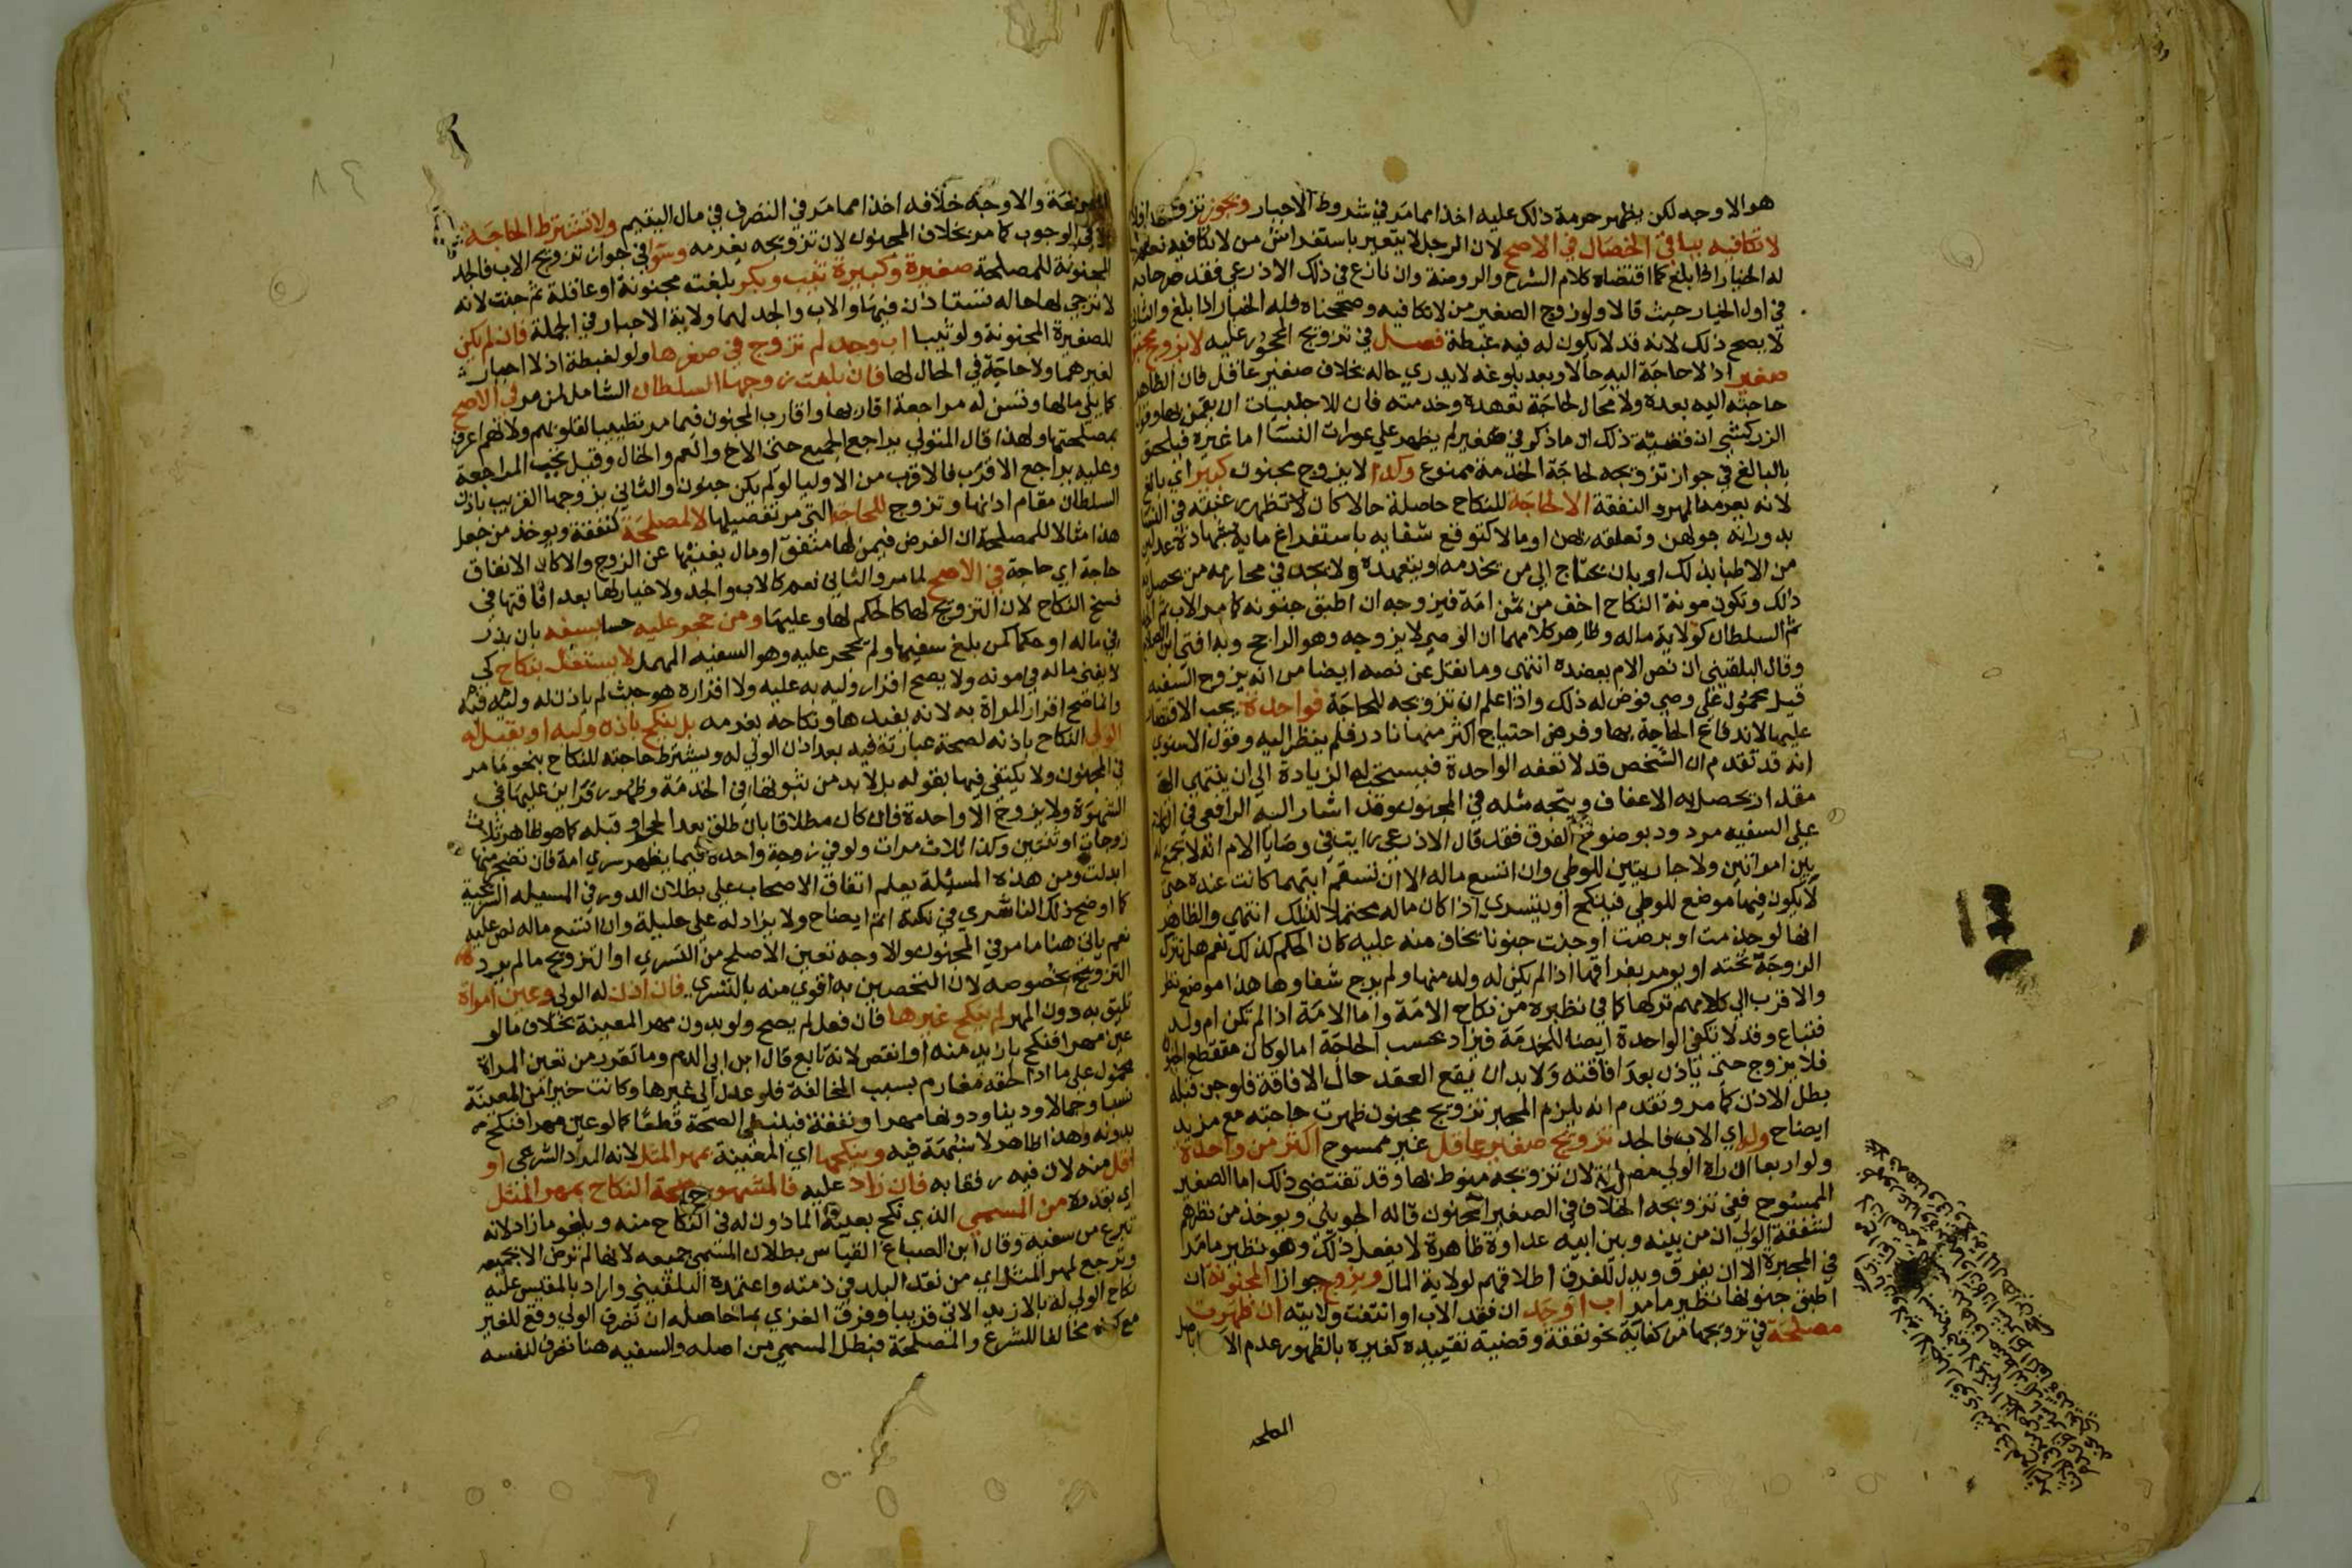 هو الاوجه لكن يظهر حرمة ذلك عليه اخذا مما مر في شروط الاجبار ويجوز تزويجه
لا تكافيه بباقي الخصال في الاصح لان الرجل لا يتعير باستفراش من لا تكافيه نعم
له الخيار اذا بلغ كما اقتضاه كلام الشرح والروضة وان نازع في ذلك الاذرعي فقد صرحا به
في اول الخيار حيث قالا ولو زوج الصغير من لا تكافيه وصححناه فله الخيار اذا بلغ والثاني
لا يصح ذلك لانه قد لا يكون له فيه غبطة فصل في تزويج المحجور عليه لا يزوج مجنون
صغير اذ لا حاجة اليه حالا وبعد بلوغه لا يدري حاله بخلاف صغير عاقل فان الظاهر
حاجته اليه بعده ولا مجال لحاجة تعهده وخدمته فان للاجنبيات ان يقمن بها وقول
الزركشي ان قضية ذلك ان ما ذكر في صغير لم يظهر على عورات النسا اما غيره فيلحق
بالبالغ في جواز تزويجه لحاجة الخدمة ممنوع وكذا لا يزوج مجنون كبير اي بالغ
لانه يغرم المهر والنفقة الا لحاجة للنكاح حاصلة حالا كان لا تظهر رغبته في النسا
بدورانه حولهن وتعلقه بهن او مالا كتوقع شفايه باستفراغ مايه بشهادة عدلين
من الاطبا بذلك او بان يحتاج الى من يخدمه او يتعهده ولا يجد في محارمه من يحصل به
ذلك وتكون مونة النكاح اخف من ثمن امة فيزوجه ان اطبق جنونه كما مر الاب ثم الجد
ثم السلطان كولاية ماله وظاهر كلامهما ان الوصي لا يزوجه وهو الراجح وبه افتى ابن الصلاح
وقال البلقيني ان نص الام يعضده انتهى وما نقل عن نصه ايضا من انه يزوج السفيه
قيل محمول على وصي فوض له ذلك واذا علم ان تزويجه للحاجة فواحدة يجب الاقتصار
عليها لاندفاع الحاجة بها وفرض احتياج اكثر منها نادر فلم ينظر اليه وقول الاسنوي
انه قد تقدم ان الشخص قد لا تعفه الواحدة فيستحب له الزيادة الى ان ينتهي الى
مقدار يحصل به الاعفاف ويتجه مثله في المجنون وقد اشار اليه الرافعي في الكلام
على السفيه مردود بوضوح الفرق فقد قال الاذرعي رايت في وصايا الام انه لا يجمع له
بين امراتين ولا جاريتين للوطي وان اتسع ماله الا ان تسقم ايتهما كانت عنده حتى
لا يكون فيها موضع للوطي فينكح او يتسرى اذا كان ماله محتملا لذلك انتهى والظاهر
انها لو جذمت او برصت او جنت جنونا يخاف منه عليه كان الحكم كذلك نعم هل تترك
الزوجة تحته او يومر بفراقها اذا لم يكن له ولد منها ولم يرج شفاوها هذا موضع نظر
والاقرب الى كلامهم تركها كما في نظيره من نكاح الامة واما الامة اذا لم تكن ام ولد
فتباع وقد لا تكفي الواحدة ايضا للخدمة فيزاد بحسب الحاجة اما لو كان متقطع الجنون
فلا يزوج حتى ياذن بعد افاقته ولا بد ان يقع العقد حال الافاقة فلو جن قبله
بطل الاذن كما مر وتقدم انه يلزم المجبر تزويج مجنون ظهرت حاجته مع مزيد
ايضاح وله اي الاب فالجد تزويج صغير عاقل غير ممسوح اكثر من واحدة
ولو اربعا ان راه الولي مصلحة لان تزويجه منوط بها وقد تقتضي ذلك اما الصغير
الممسوح ففي تزويجه الخلاف في الصغير المجنون قاله الجويني ويوخذ من نظرهم
لشفقة الولي ان من بينه وبين ابيه عداوة ظاهرة لا يفعل ذلك وهو نظير ما مر
في المجبرة الا ان يفرق ويدل للفرق اطلاقهم لولاية المال ويزوج جوازا المجنونة ان
اطبق جنونها نظير ما مر اب او جد ان فقد الاب او انتفت ولايته ان ظهرت
مصلحة في تزويجها من كفاية نحو نفقة وقضية تقييده كغيره بالظهور عدم الا
المصلحة
والاوجه خلافه اخذا مما مر في التصرف في مال اليتيم ولا تشترط الحاجة
في الوجوب كما مر بخلاف المجنون لان تزويجه يغرمه وسوا في جواز تزويج الاب فالجد
المجنونة للمصلحة صغيرة وكبيرة ثيب وبكر بلغت مجنونة او عاقلة ثم جنت لانه
لا ترجى لها حالة تستاذن فيها والاب والجد لهما ولاية الاجبار في الجملة فان لم يكن
للصغيرة المجنونة ولو ثيبا اب وجد لم تزوج في صغرها ولو لغبطة اذ لا اجبار
لغيرهما ولا حاجة في الحال لها فان بلغت زوجها السلطان الشامل لمن مر في الاصح
كما يلي مالها وتسن له مراجعة اقاربها واقارب المجنون فيما مر تطييبا لقلوبهم ولانهم اعرف
بمصلحتها ولهذا قال المتولي يراجع الجميع حتى الاخ والعم والخال وقيل تجب المراجعة
وعليه يراجع الاقرب فالاقرب من الاوليا لو لم يكن جنون والثاني يزوجها القريب باذن
السلطان مقام اذنها وتزوج للحاجة التي مر تفصيلها لا لمصلحة كنفقة ويوخذ من جعل
هذا مثالا للمصلحة ان الفرض فيمن لها منفق او مال يغنيها عن الزوج والا كان الانفاق
حاجة اي حاجة في الاصح لما مر والثاني نعم كالاب والجد ولا خيار لها بعد افاقتها في
فسخ النكاح لان التزويج لها كالحكم لها وعليها ومن حجر عليه حسا بسفه بان بذر
في ماله او حكما كمن بلغ سفيها ولم يحجر عليه وهو السفيه المهمل لا يستقل بنكاح كي
لا يفنى ماله في مونه ولا يصح اقرار وليه به عليه ولا اقراره هو حيث لم ياذن له وليه فيه
وانما صح اقرار المراة به لانه يفيدها ونكاحه يغرمه بل ينكح باذن وليه او يقبل له
الولي النكاح باذنه لصحة عبارته فيه بعد اذن الولي له ويشترط حاجته للنكاح بنحو ما مر
في المجنون ولا يكتفى فيها بقوله بل لا بد من ثبوتها في الخدمة وظهور قراين عليها في
الشهوة ولا يزوج الا واحدة فان كان مطلاقا بان طلق بعد الحجر او قبله كما هو ظاهر ثلاث
زوجات او ثنتين وكذا ثلاث مرات ولو في زوجة واحدة فيما يظهر سري امة فان تضجر منها
ابدلت ومن هذه المسئلة يعلم اتفاق الاصحاب على بطلان الدور في المسئلة السريجية
كما اوضح ذلك الناشري في نكته اتم ايضاح ولا يزاد له على حليلة وان اتسع ماله نص عليه
نعم ياتي هنا ما مر في المجنون والاوجه تعين الاصلح من التسري او التزويج ما لم يرد
التزويج بخصوصه لان التحصين به اقوى منه بالتسري فان اذن له الولي وعين امراة
تليق به دون المهر لم ينكح غيرها فان فعل لم يصح ولو بدون مهر المعينة بخلاف ما لو
عين مهرا فنكح بازيد منه او انقص لانه تابع قال ابن ابي الدم وما تقرر من تعين المراة
محمول على ما اذا لحقه مغارم بسبب المخالفة فلو عدل الى غيرها وكانت خيرا من المعينة
نسبا وجمالا ودينا ودونها مهرا ونفقة فينبغي الصحة قطعا كما لو عين مهرا فنكح
بدونه وهذا ظاهر لا شبهة فيه وينكحها اي المعينة بمهر المثل لانه المراد الشرعي او
اقل منه لان فيه رفقا به فان زاد عليه فالمشهور صحة النكاح بمهر المثل
اي بقدره من المسمى الذي نكح بعينه الماذون له في النكاح منه ويلغو ما زاد لانه
تبرع من سفيه وقال ابن الصباغ القياس بطلان المسمى جميعه لانها لم ترض الا بجميعه
وترجع لمهر المثل اي من نقد البلد في ذمته واعتمده البلقيني واراد بالمقيس عليه
نكاح الولي له بالازيد الاتي قريبا وفرق الغزي بما حاصله ان تصرف الولي وقع للغير
مع كونه مخالفا للشرع والمصلحة فبطل المسمى من اصله والسفيه هنا تصرف لنفسه